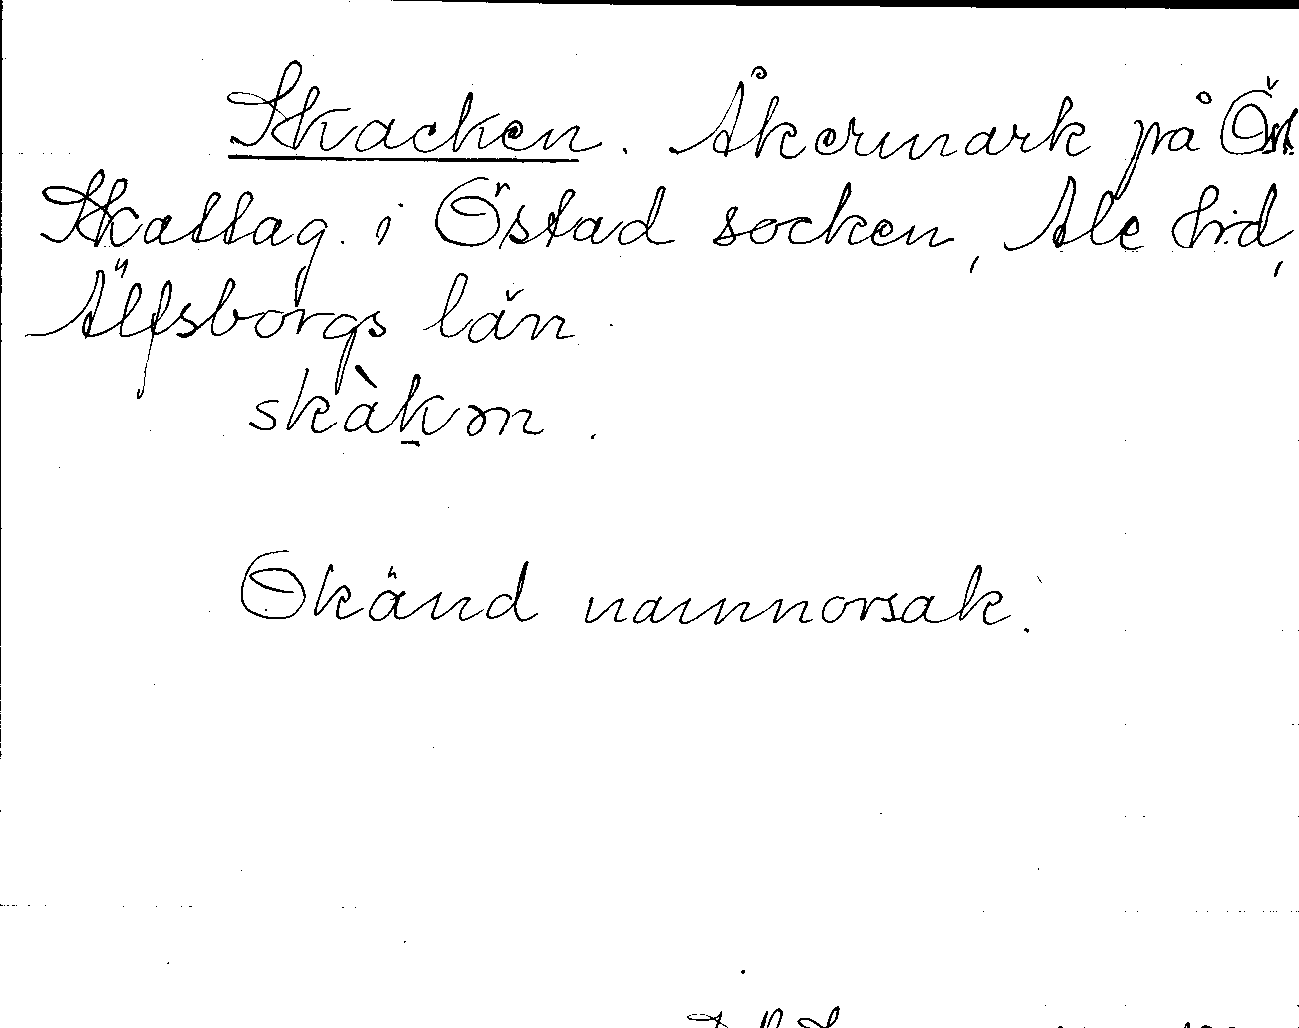 Skacken. Åkermark på Ö.
Skattag. i Östad socken, Ale hrd,
Älfsborgs län
skàkən.
Okänd namnorsak.